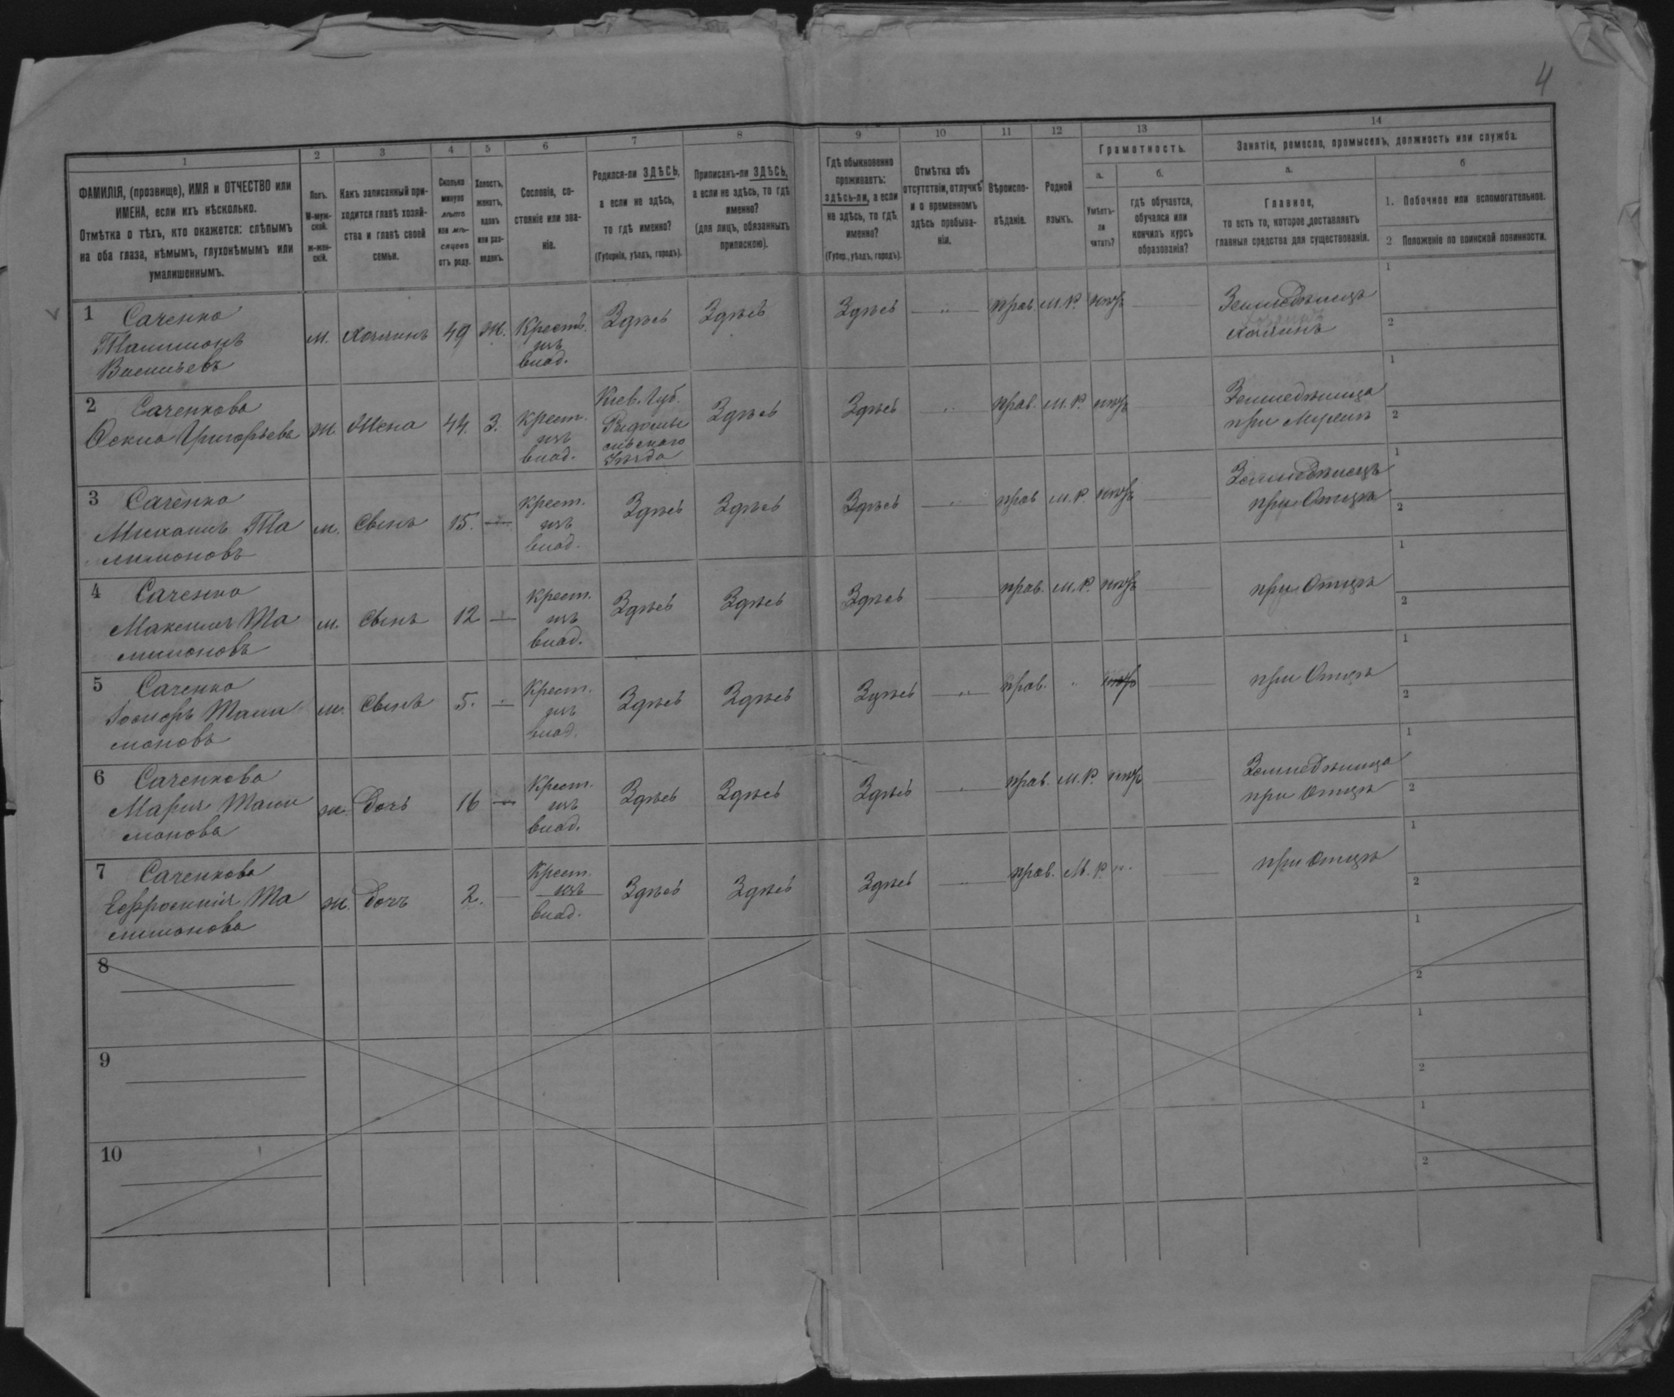 4
1
2
3
4
5
6
7
8
9
10
11
12
13
14
ФАМИЛІЯ, (прозвище), ИМЯ и ОТЧЕСТВО или
ИМЕНА, если ихъ нѣсколько.
Отмѣтка о тѣхъ, кто окажется: слѣпымъ
на оба глаза, нѣмымъ, глухонѣмымъ или
умалишеннымъ.
Полъ.
М-муж-
ской.
ж-жен-
скій.
Какъ записанный при-
ходится главѣ хозяй-
ства и главѣ своей
семьи.
Сколько
минуло
лѣтъ
или мѣ-
сяцевъ
отъ роду.
Холостъ,
женатъ,
вдовъ
или раз-
веденъ.
Сословіе, со-
стояніе или зва-
ніе.
Родился-ли ЗДѢСЬ,
а если не здѣсь,
то гдѣ именно?
(Губернія, уѣздъ, городъ).
Приписанъ-ли ЗДѢСЬ,
а если не здѣсь, то гдѣ
именно?
(для лицъ, обязанныхъ
припискою).
Гдѣ обыкновенно
проживаетъ:
здѣсь-ли, а если
не здѣсь, то гдѣ
именно?
(Губер., уѣздъ, городъ).
Отмѣтка объ
отсутствіи, отлучкѣ
и о временномъ
здѣсь пребыва-
ніи.
Вѣроиспо-
вѣданіе.
Родной
языкъ.
Грамотность.
а.
Умѣетъ-
ли
читать?
б.
гдѣ обучается,
обучался или
кончилъ курсъ
образованія?
Занятіе, ремесло, промыселъ, должность или служба.
а.
Главное,
то есть то, которое доставляетъ
главныя средства для существованія.
б
1. Побочное или вспомогательное.
2 Положеніе по воинской повинности.
1 Саченко
Талимонъ
Васильевъ
м.
Хозяинъ
49
Ж.
Крест.
изъ
влад.
Здѣсь
Здѣсь
Здѣсь
прав.
М.Р.
нѣтъ
Земледѣлецъ
хозяинъ
1
2
2 Саченкова
Григорьева
ж.
Жена
44.
З.
Крест.
изъ
влад.
Кіев. Губ.
Радомы
сльскаго
Уѣзда
Здѣсь
Здѣсь
прав.
М.Р.
нѣтъ
Земледѣлица
при Мужѣ
1
2
3 Саченко
Михаилъ Та
лимоновъ
м.
Сынъ
15.
Крест.
изъ
влад.
Здѣсь
Здѣсь
Здѣсь
прав
М.Р.
нѣтъ
Земледѣлецъ
при Отцѣ
1
2
4 Саченко
Максимъ Та
лимоновъ
м.
Сынъ
12
Крест.
изъ
влад.
Здѣсь
Здѣсь
Здѣсь
прав.
М.Р.
нѣтъ
при Отцѣ
1
2
5 Саченко
Тали
моновъ
м.
Сынъ
5.
Крест.
изъ
влад.
Здѣсь
Здѣсь
Здѣсь
прав.
при Отцѣ
1
2
6 Саченкова
Марія Тали
монова
ж.
Дочь
16
Крест.
изъ
влад.
Здѣсь
Здѣсь
Здѣсь
прав
М.Р.
нѣтъ
Земледѣлица
при Отцѣ
1
2
7 Саченкова
Ефросинія Та
лимонова
ж.
Дочь
2.
Крест.
изъ
влад.
Здѣсь
Здѣсь
Здѣсь
прав.
М.Р.
при Отцѣ
1
2
8
1
2
9
1
2
10
1
2